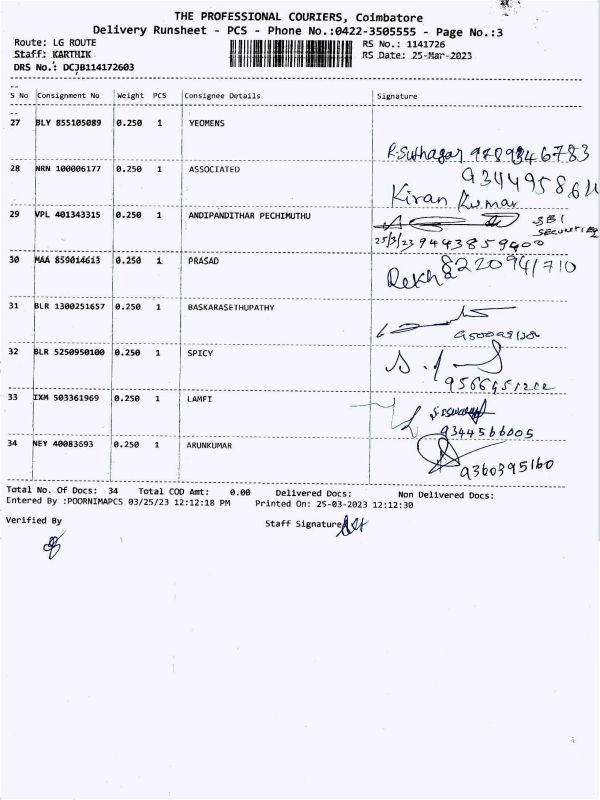 THE PROFESSIONAL COURIERS, Coimbatore
Delivery Runsheet - PCS - Phone No.:0422-3505555 - Page No.:3
Route: LG ROUTE RS No.: 1141726
Staff: KARTHIK RS Date: 25-Mar-2023
DRS No.: DCJB114172603
S No Consignment No Weight PCS Consignee Details Signature
27 BLY 855105089 0.250 1 YEOMENS
R.Suthagar
28 NRN 100006177 0.250 1 ASSOCIATED
Kiran Kumar
29 VPL 401343315 0.250 1 ANDIPANDITHAR PECHIMUTHU
SBI
SECURITIES
25/3/23 9443859400
30 MAA 859014613 0.250 1 PRASAD
Rekha 8220941710
31 BLR 1300251657 0.250 1 BASKARASETHUPATHY
32 BLR 5250950100 0.250 1 SPICY
33 IXM 503361969 0.250 1 LAMFI
9344566005
34 NEY 40083693 0.250 1 ARUNKUMAR
9360395160
Total No. Of Docs: 34 Total COD Amt: 0.00 Delivered Docs: Non Delivered Docs:
Entered By :POORNIMAPCS 03/25/23 12:12:18 PM Printed On: 25-03-2023 12:12:30
Verified By Staff Signature